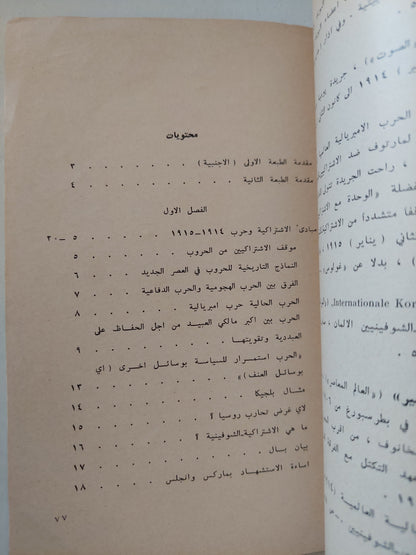 محتويات
مقدمة الطبعة الاولى (الاجنبية) . . . . . . . ٣
مقدمة الطبعة الثانية . . . . . . . . . ٤
الفصل الاول
مبادئ الاشتراكية وحرب ١٩١٤-١٩١٥ . . . . . ٥-٣٠
موقف الاشتراكيين من الحروب . . . . . . ٥
النماذج التاريخية للحروب في العصر الجديد . . . ٦
الفرق بين الحرب الهجومية والحرب الدفاعية . . . ٧
الحرب الحالية حرب امبريالية . . . . . . ٨
الحرب بين اكبر مالكي العبيد من اجل الحفاظ على
العبودية وتقويتها . . . . . . . . . ٩
«الحرب استمرار للسياسة بوسائل اخرى (اي
بوسائل العنف)» . . . . . . . . . ١٣
مثال بلجيكا . . . . . . . . . . ١٤
لاي غرض تحارب روسيا ؟ . . . . . . . ١٥
ما هي الاشتراكية-الشوفينية ؟ . . . . . . ١٦
بيان بال . . . . . . . . . . . ١٧
اساءة الاستشهاد بماركس وانجلس . . . . . ١٨
٧٧
«الصوت») ، جريدة
١٩١٤ الى كانون
الحرب الامبريالية
لمارتوف ضد
، راحت الجريدة
«الوحدة مع
متشددا) من
(يناير) ١٩١٥ ،
، بدلا عن «غولوس»
Internationale Kor
-الشوفينيين الالمان ،
٥ .
(«العالم المعاصر»)
في بطرسبورغ من
، من
التكتل مع
١٩ .
العالمية